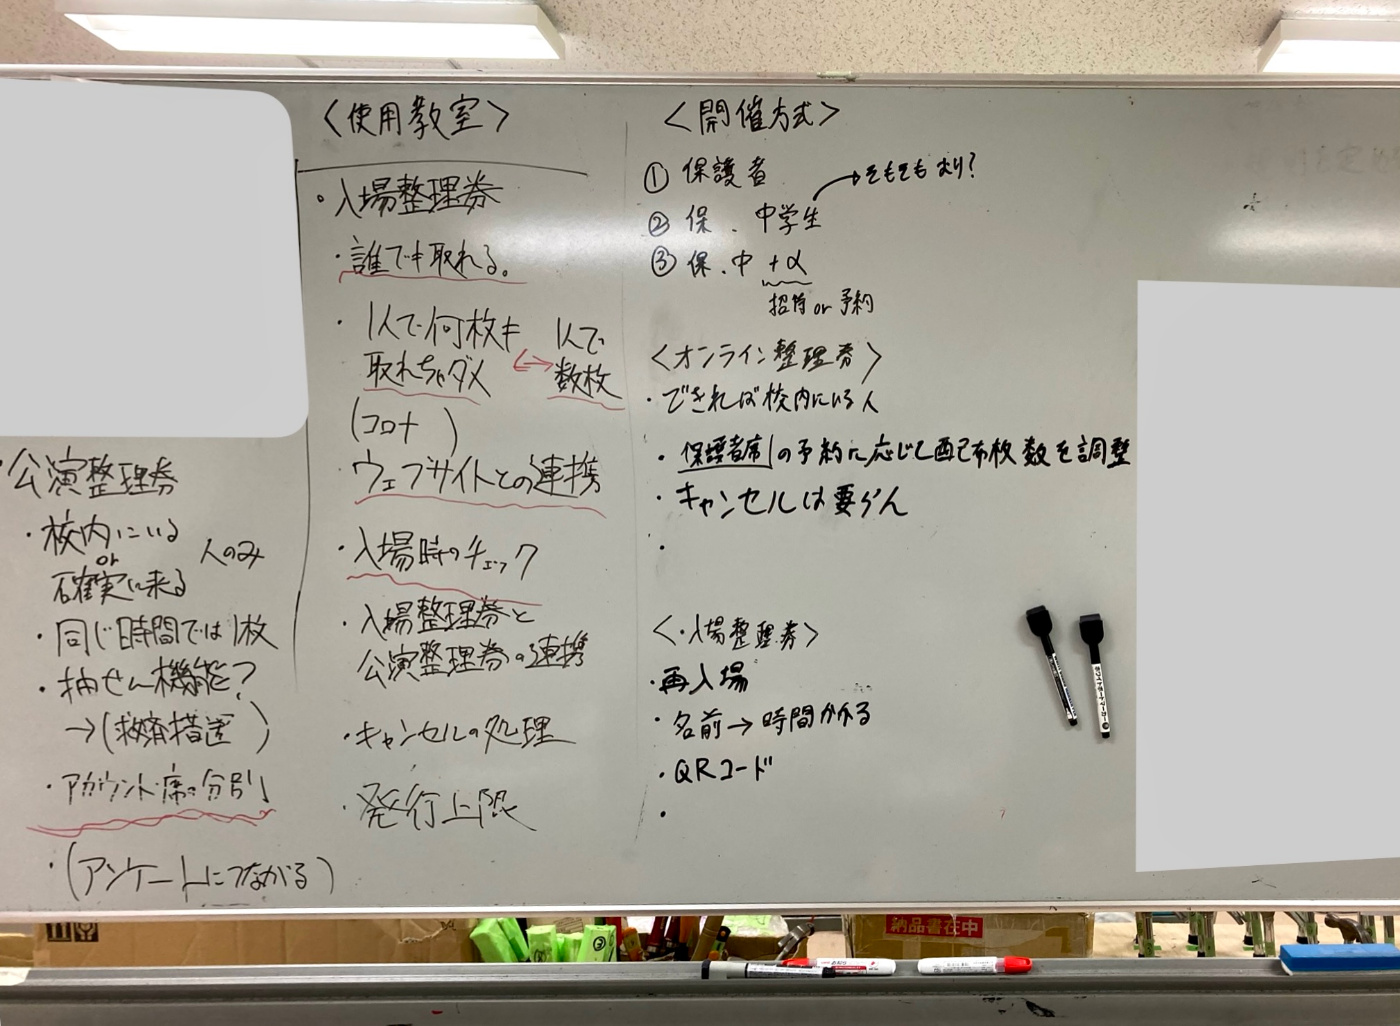 ・公演整理券
・校内にいる
or
確実に来る
人のみ
・同じ時間では1枚
・抽せん機能?
→(救済措置)
・アカウント・席の分別
・(アンケートにつながる)
<使用教室>
・入場整理券
・誰でも取れる。
・1人で何枚も
取れちゃダメ
↔
1人で
数枚
(コロナ)
ウェブサイトとの連携
・入場時のチェック
・入場整理券と
公演整理券の連携
・キャンセルの処理
・発行上限
<開催方式>
① 保護者
② 保、中学生
→そもそもあり?
③ 保、中 +α
招待 or 予約
<オンライン整理券>
・できれば校内にいる人
・保護者席の予約に応じて配布枚数を調整
・キャンセルは要らん
・
<入場整理券>
・再入場
・名前→時間かかる
・QRコード
・
納品書在中